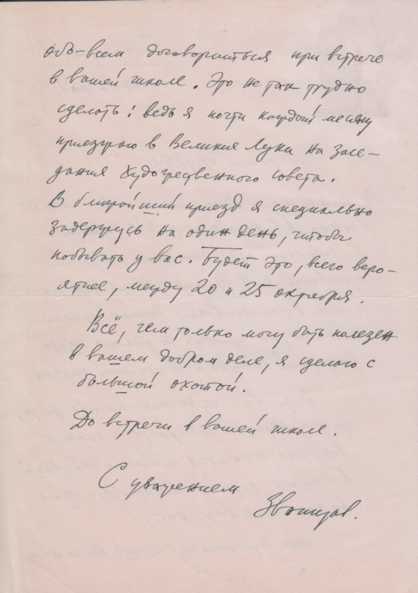 обо всем договориться при встрече
в вашей школе. Это не так трудно
сделать: ведь я почти каждый месяц
приезжаю в Великие Луки на засе-
дания Художественного совета.
В ближайший приезд я специально
задержусь на один день, чтобы
побывать у вас. Будет это, всего веро-
ятнее, между 20 и 25 октября.
Всё, чем только могу быть полезен
в вашем добром деле, я сделаю с
большой охотой.
До встречи в вашей школе.
С уважением